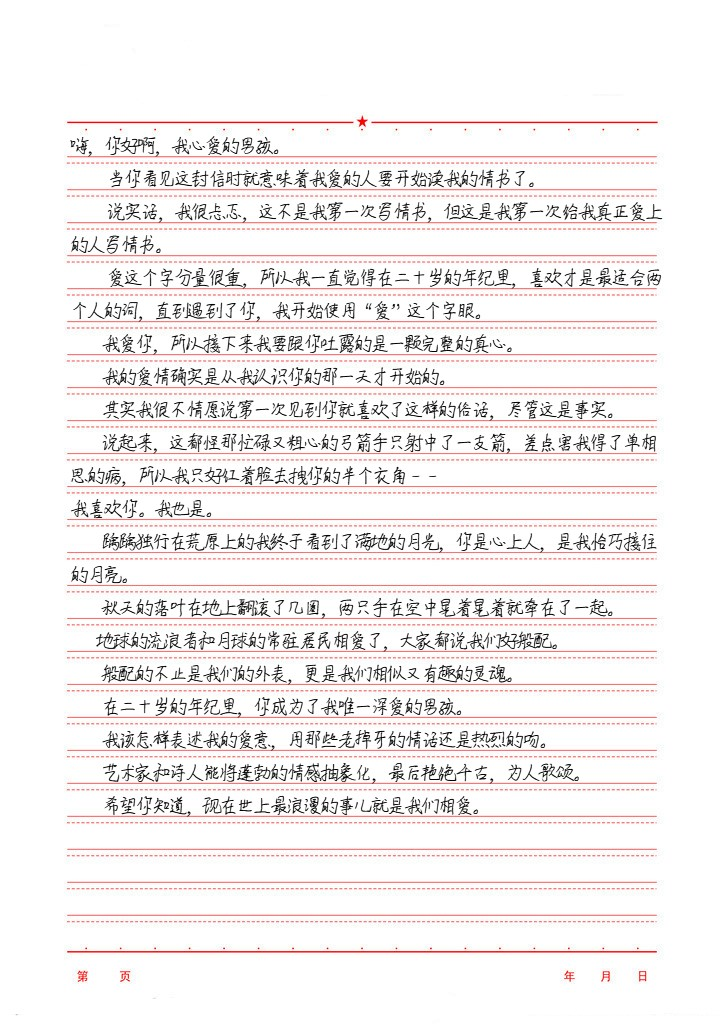 嗨，你好啊，我心爱的男孩。
当你看见这封信时就意味着我爱的人要开始读我的情书了。
说实话，我很忐忑，这不是我第一次写情书，但这是我第一次给我真正爱上
的人写情书。
爱这个字分量很重，所以我一直觉得在二十岁的年纪里，喜欢才是最适合两
个人的词，直到遇到了你，我开始使用“爱”这个字眼。
我爱你，所以接下来我要跟你吐露的是一颗完整的真心。
我的爱情确实是从我认识你的那一天才开始的。
其实我很不情愿说第一次见到你就喜欢了这样的俗话，尽管这是事实。
说起来，这都怪那忙碌又粗心的弓箭手只射中了一支箭，差点害我得了单相
思的病，所以我只好红着脸去拽你的半个衣角--
我喜欢你。我也是。
踽踽独行在荒原上的我终于看到了满地的月光，你是心上人，是我恰巧接住
的月亮。
秋天的落叶在地上翻滚了几圈，两只手在空中晃着晃着就牵在了一起。
地球的流浪者和月球的常驻居民相爱了，大家都说我们好般配。
般配的不止是我们的外表，更是我们相似又有趣的灵魂。
在二十岁的年纪里，你成为了我唯一深爱的男孩。
我该怎样表述我的爱意，用那些老掉牙的情话还是热烈的吻。
艺术家和诗人能将蓬勃的情感抽象化，最后艳绝千古，为人歌颂。
希望你知道，现在世上最浪漫的事儿就是我们相爱。
第 页 年 月 日